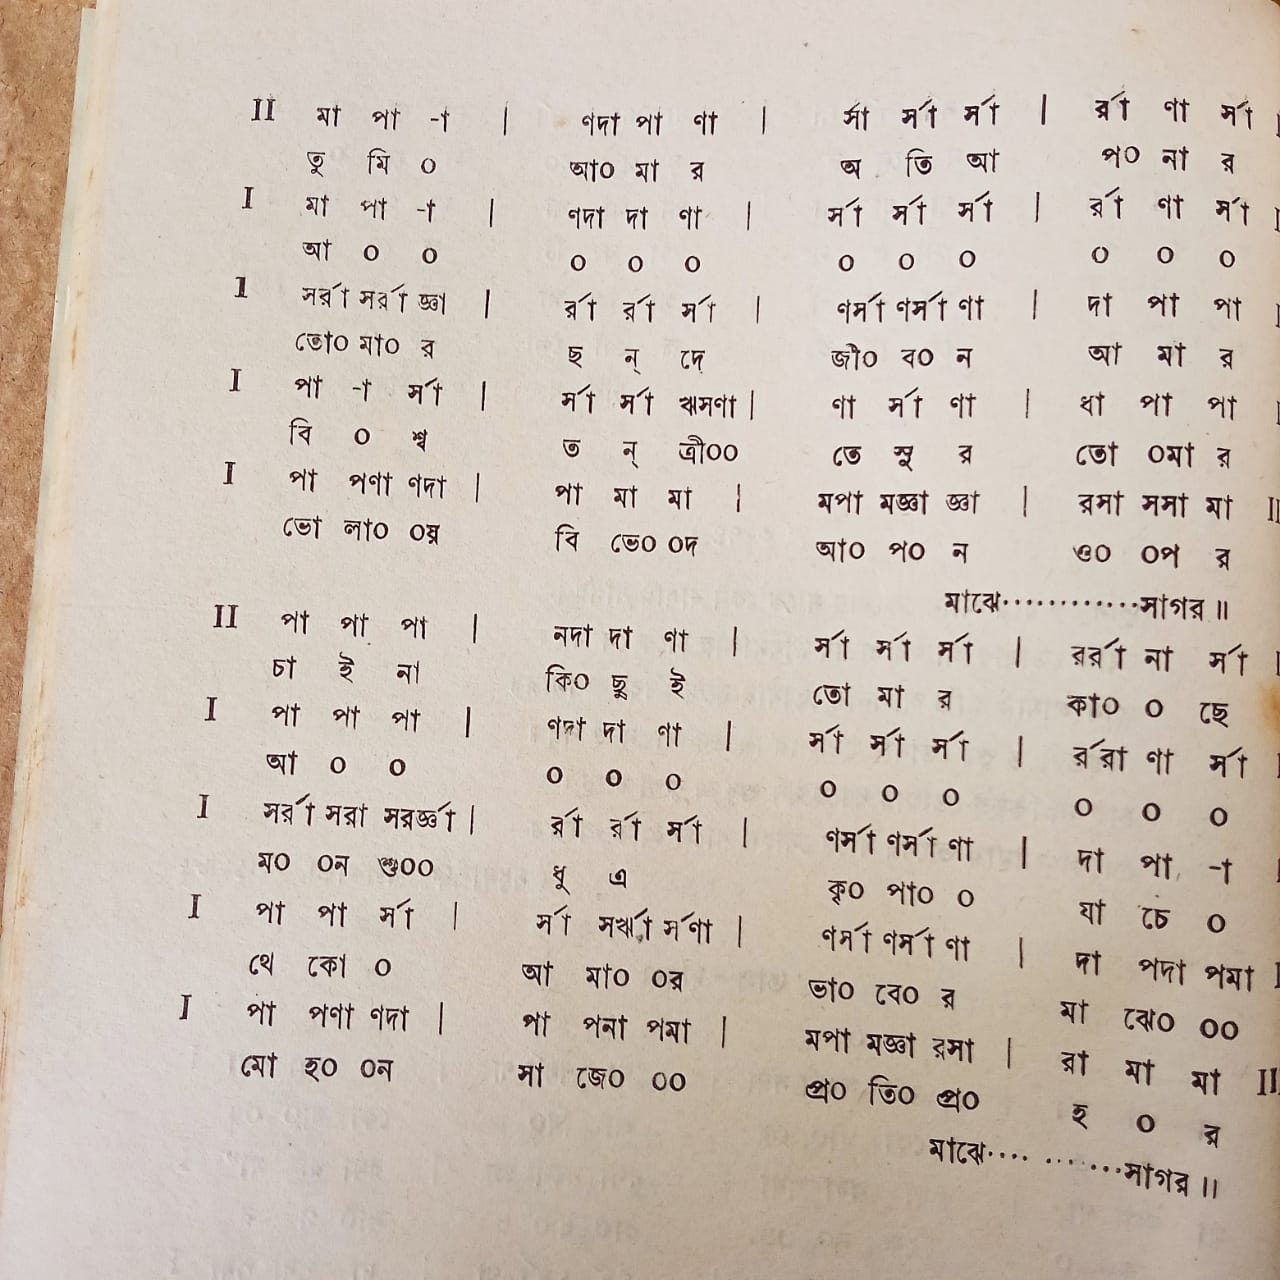 II মা পা -া | ণদা পা ণা | র্সা র্সা র্সা | র্রা ণা র্সা I
তু মি ০ আ০ মা র অ তি আ প০ না র
I মা পা -া | ণদা দা ণা | র্সা র্সা র্সা | র্রা ণা র্সা I
আ ০ ০ ০ ০ ০ ০ ০ ০ ০ ০ ০
I সর্রা সর্রা জ্ঞা | র্রা র্রা র্সা | ণর্সা ণর্সা ণা | দা পা পা I
তো০ মা০ র ছ ন্ দে জী০ ব০ ন আ মা র
I পা -া র্সা | র্সা র্সা ঋসণা | ণা র্সা ণা | ধা পা পা I
বি ০ শ্ব ত ন্ ত্রী০০ তে সু র তো ০মা র
I পা পণা ণদা | পা মা মা | মপা মজ্ঞা জ্ঞা | রসা সসা মা II
ভো লা০ ০য় বি ভে০ ০দ আ০ প০ ন ও০ ০প র
মাঝে············সাগর ॥
II পা পা পা | নদা দা ণা | র্সা র্সা র্সা | রর্রা না র্সা I
চা ই না কি০ ছু ই তো মা র কা০ ০ ছে
I পা পা পা | ণদা দা ণা | র্সা র্সা র্সা | র্ররা ণা র্সা I
আ ০ ০ ০ ০ ০ ০ ০ ০ ০ ০ ০
I সর্রা সরা সরর্জ্ঞা | র্রা র্রা র্সা | ণর্সা ণর্সা ণা | দা পা -া I
ম০ ০ন শু০০ ধু এ কৃ০ পা০ ০ যা চে ০
I পা পা র্সা | র্সা সর্ঋা র্সণা | ণর্সা ণর্সা ণা | দা পদা পমা I
থে কো ০ আ মা০ ০র ভা০ বে০ র মা ঝে০ ০০
I পা পণা ণদা | পা পনা পমা | মপা মজ্ঞা রসা | রা মা মা II
মো হ০ ০ন সা জে০ ০০ প্র০ তি০ প্র০ হ ০ র
মাঝে···· ·······সাগর ॥